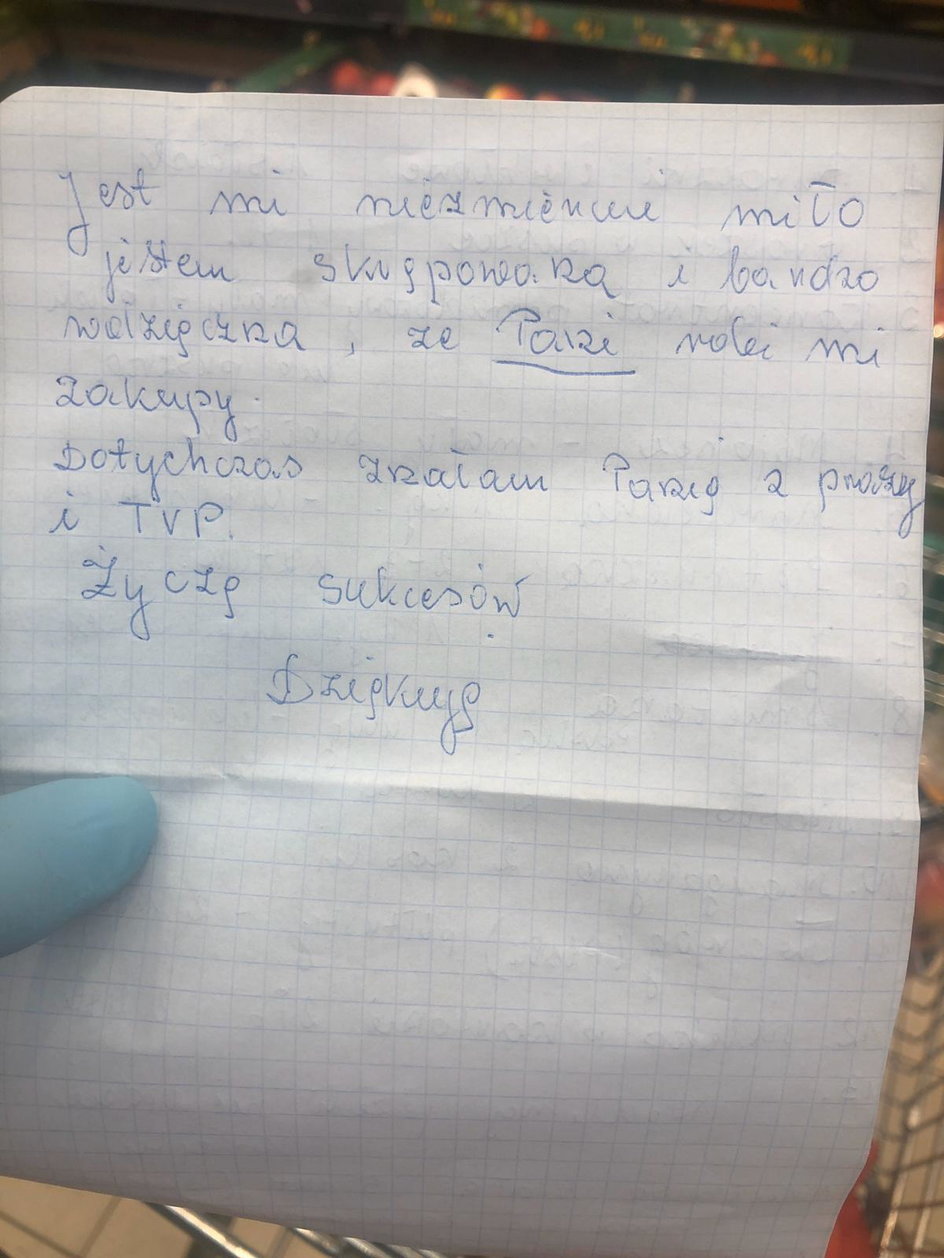 Jest mi niezmiernie miło
jestem skrępowana i bardzo
wdzięczna, ze Pani robi mi
zakupy.
Dotychczas znałam Panią z prasy
i TVP.
Życzę sukcesów
Dziękuję